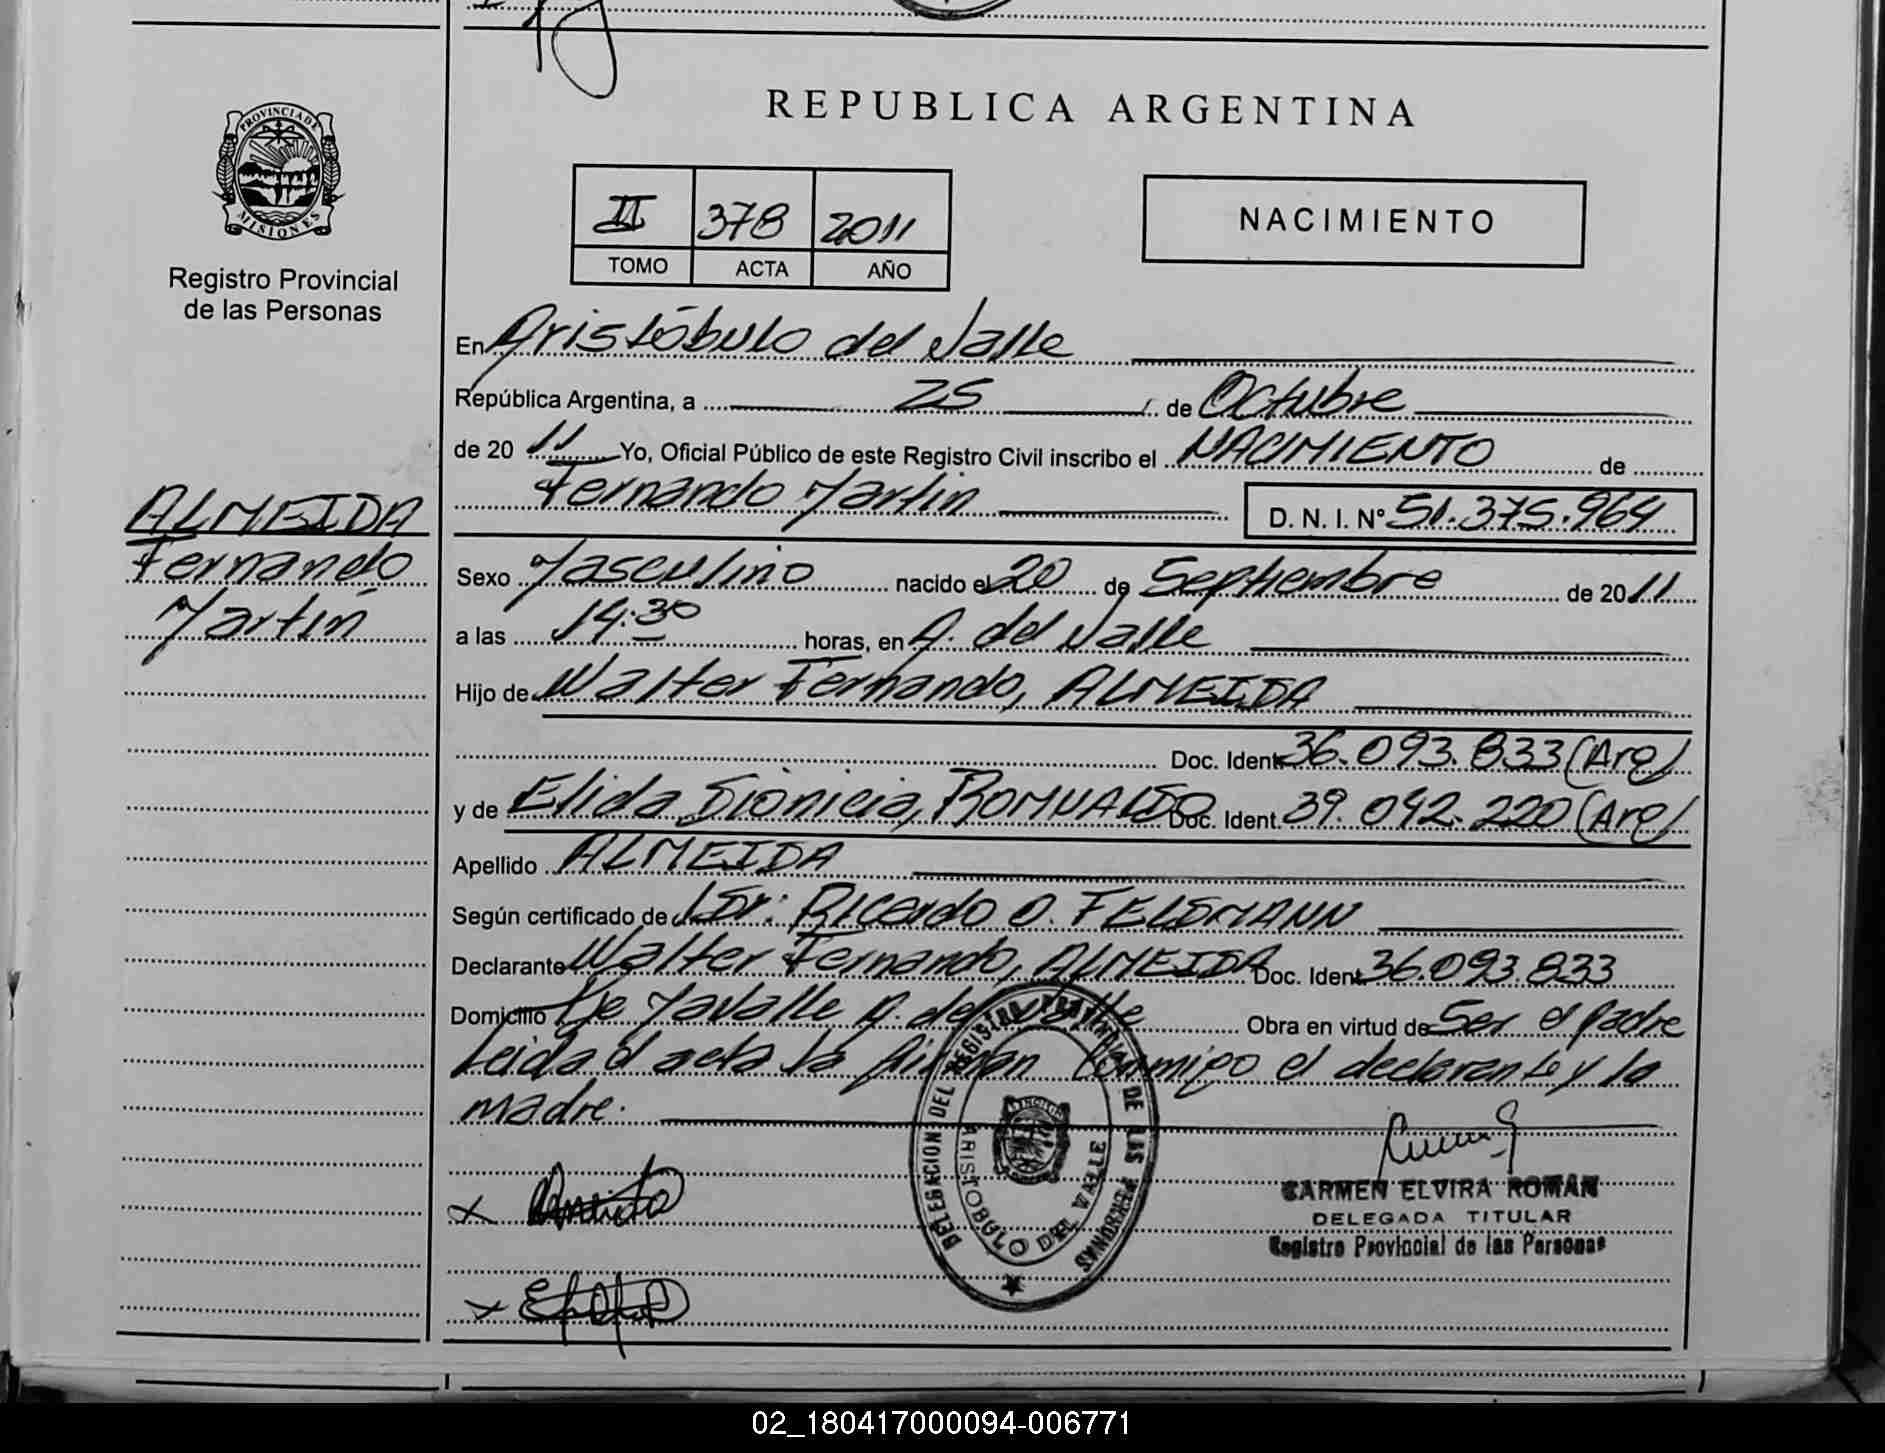 REPUBLICA ARGENTINA
PROVINCIA DE MISIONES
Registro Provincial
de las Personas
II 378 2011
TOMO ACTA AÑO
NACIMIENTO
En Aristóbulo del Valle
República Argentina, a 25 de Octubre
de 20 11 Yo, Oficial Público de este Registro Civil inscribo el NACIMIENTO de
Fernando Martin D. N. I. N° 51.375.964
ALMEIDA
Fernando
Martín
Sexo Masculino nacido el 20 de Septiembre de 2011
a las 14:30 horas, en A. del Valle
Hijo de Walter Fernando, ALMEIDA
Doc. Ident. 36.093.833 (Arg)
y de Elida Dionicia, ROMUALDO Doc. Ident. 39.042.220 (Arg)
Apellido ALMEIDA
Según certificado de Dr: Ricardo O. FELDMANN
Declarante Walter Fernando, ALMEIDA Doc. Ident. 36.093.833
Domicilio A. del Valle Obra en virtud de Ser el padre
Leida el acta la firman conmigo el declarante y la
madre.
DELEGACION DEL REGISTRO PROVINCIAL DE LAS PERSONAS
ARISTOBULO DEL VALLE
CARMEN ELVIRA ROMAN
DELEGADA TITULAR
Registro Provincial de las Personas
02_180417000094-006771